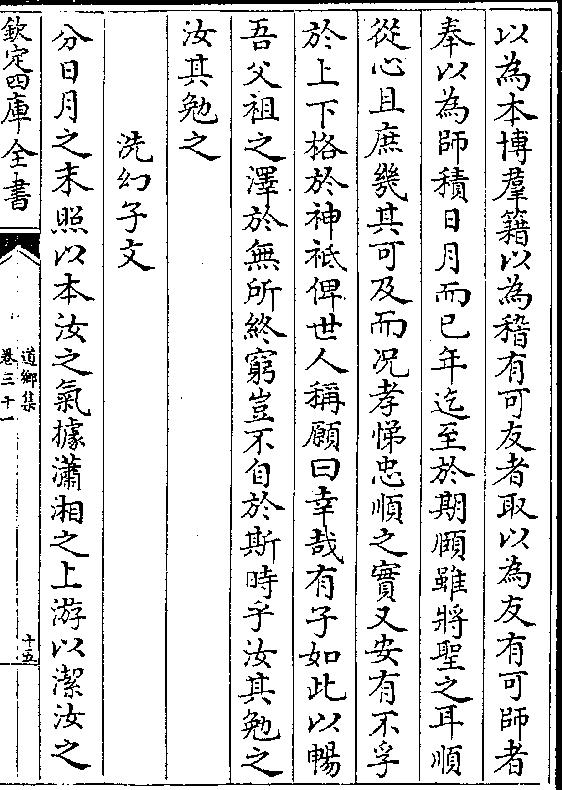 以為本博羣籍以為稽有可友者取以為友有可師者
奉以為師積日月而已年迄至於期頤雖將聖之耳順
從心且庶幾其可及而况孝悌忠順之實又安有不孚
於上下格於神祗俾世人稱願曰幸哉有子如此以暢
吾父祖之澤於無所終窮豈不自於斯時乎汝其勉之
汝其勉之
洗幻子文
分日月之末照以本汝之氣據瀟湘之上游以潔汝之
欽定四庫全書
道鄉集
卷三十一
十五